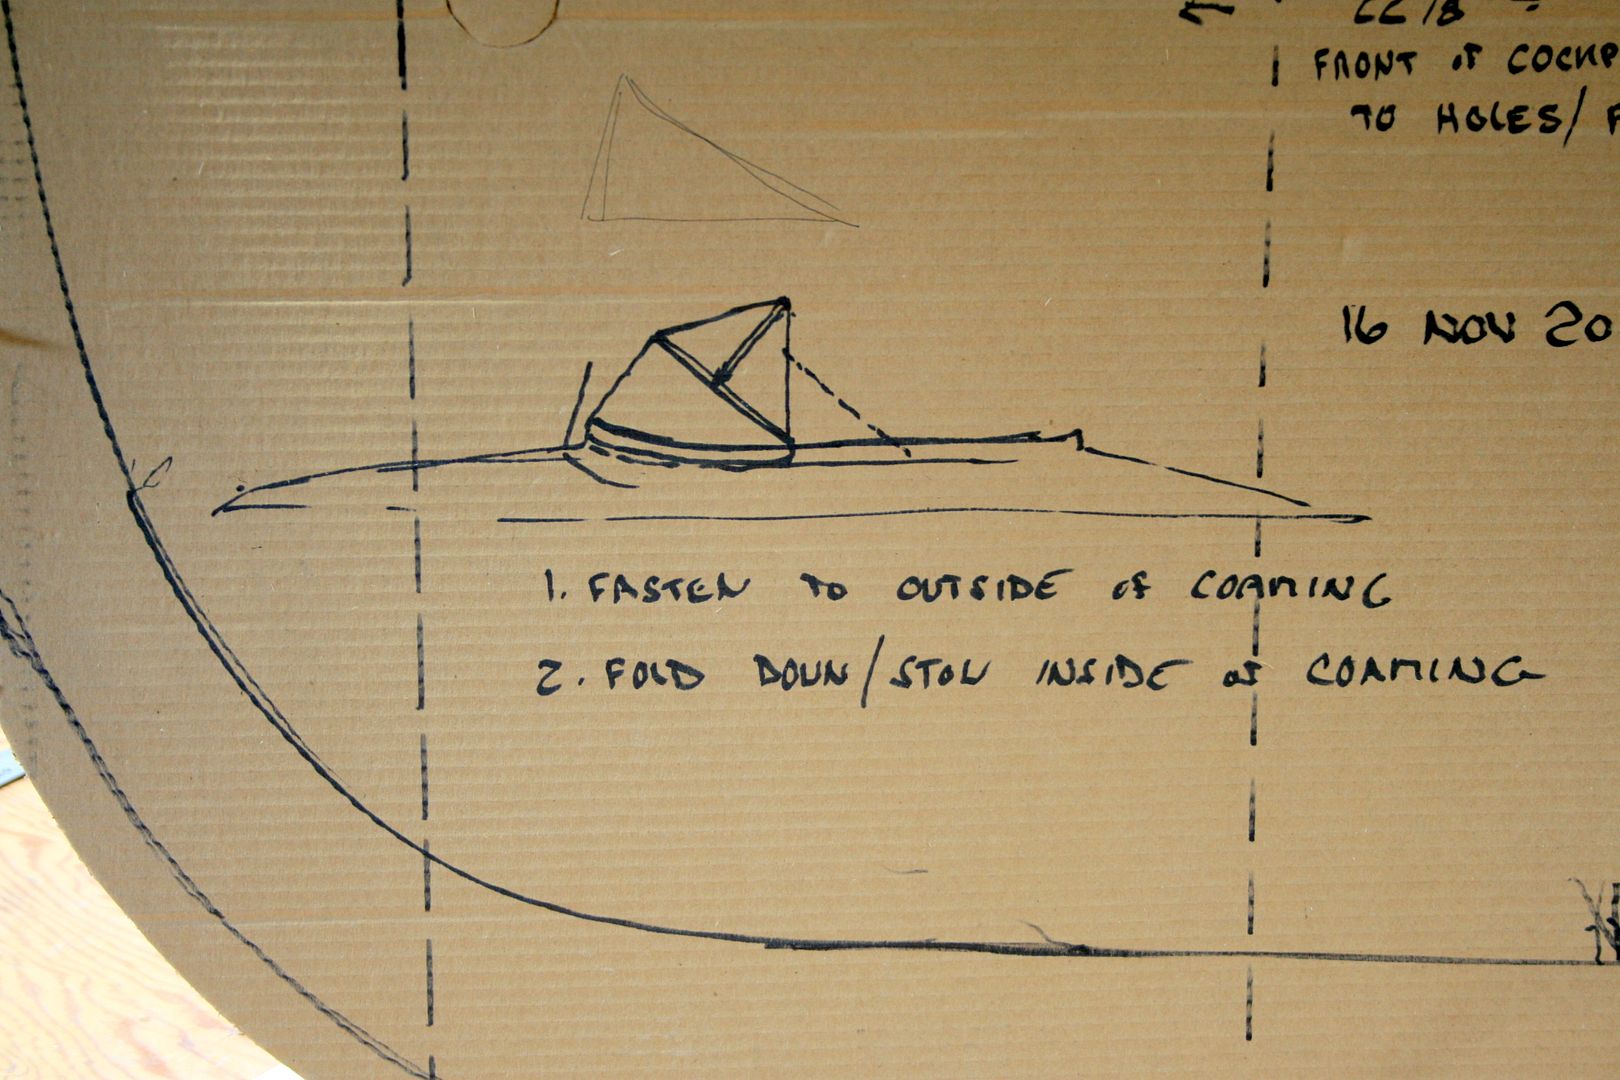 FRONT of COCKP
TO HOLES/
16 NOV 20
1. FASTEN TO OUTSIDE of COAMING
2. FOLD DOWN/STOW INSIDE of COAMING